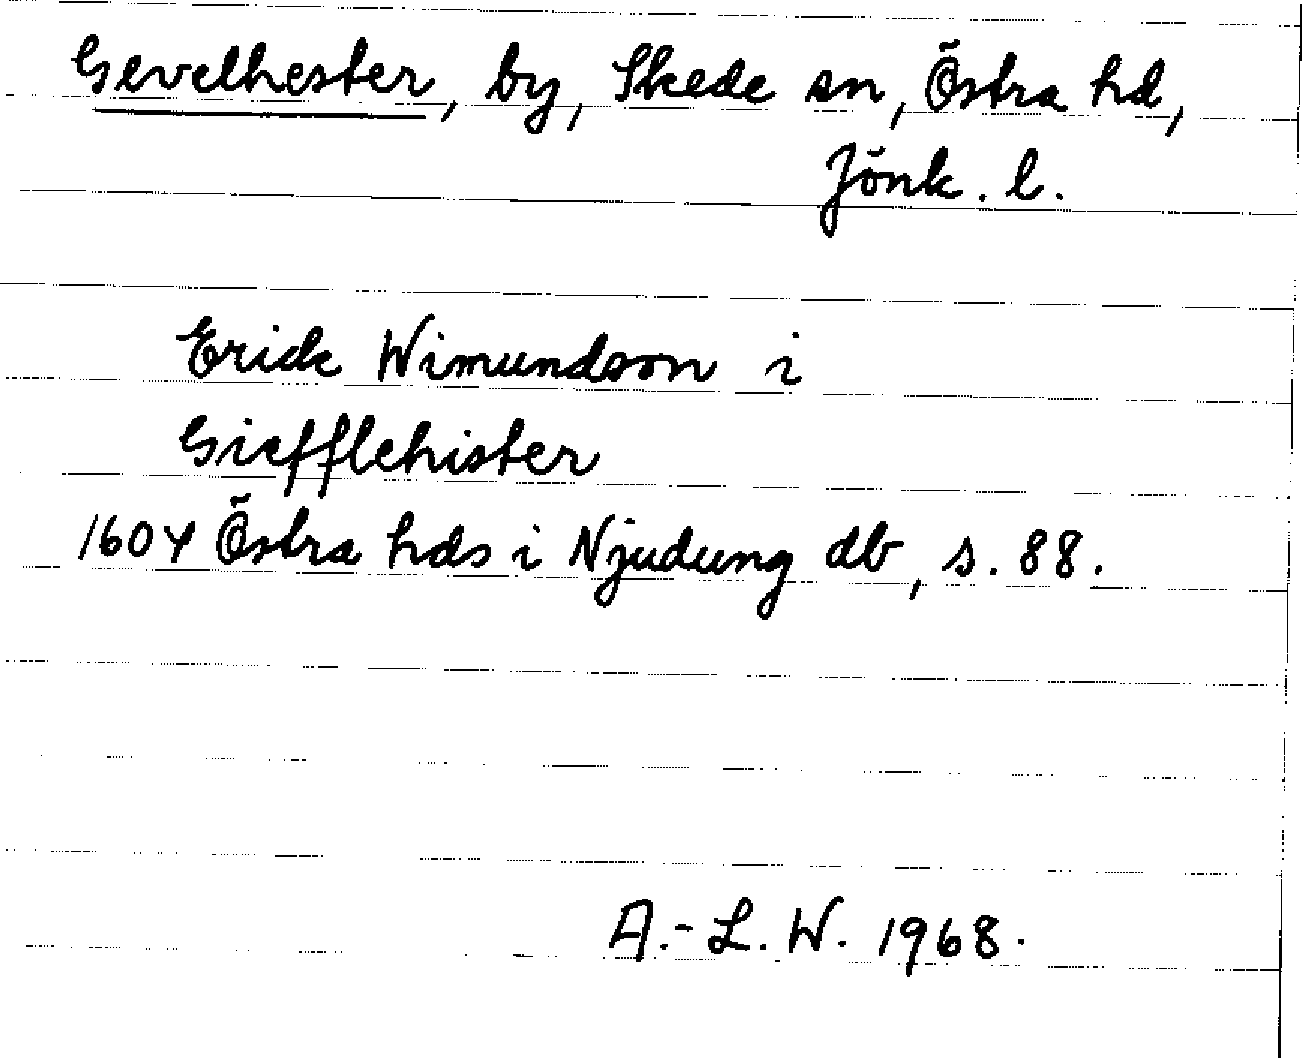 Gevelhester, by, Skede sn, Östra hd,
Jönk. l.
Erick Wimundson i
Giefflehister
1604 Östra hds i Njudung db, s. 88.
A.-L. W. 1968.